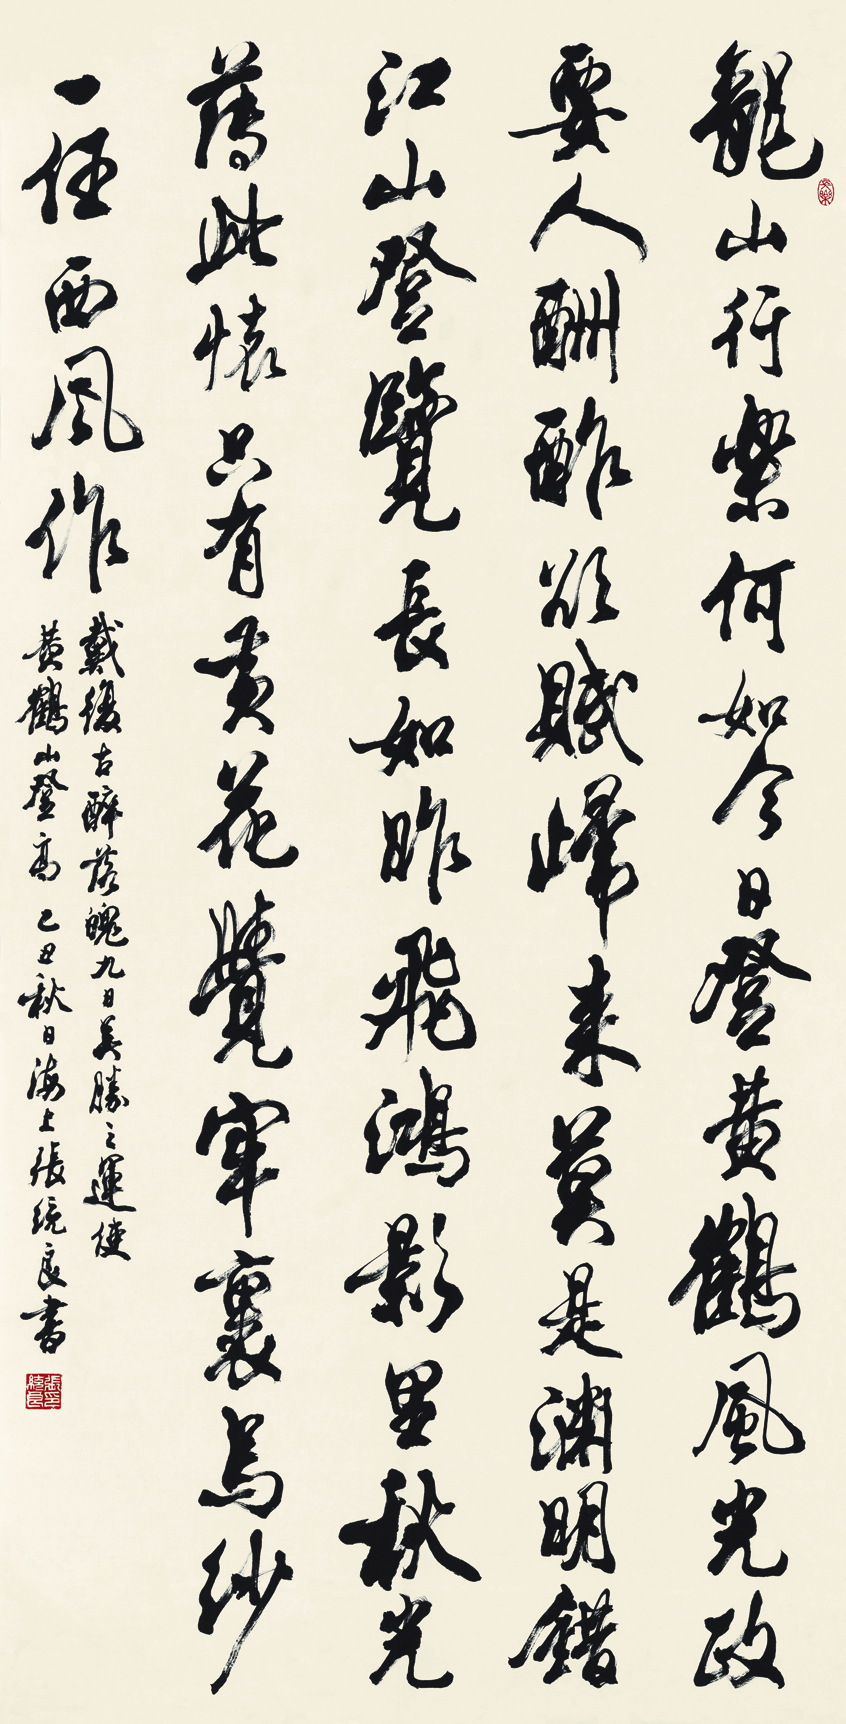 龍山行樂何如今日登黃鶴風光政
要人酬酢欲賦歸來莫是淵明錯
江山登覽長如昨飛鴻影里秋光
薄此懷只有黃花覺牢裹烏紗
一任西風作
戴復古醉落魄九日吳勝之運使
黃鶴山登高 己丑秋日海上張統良書